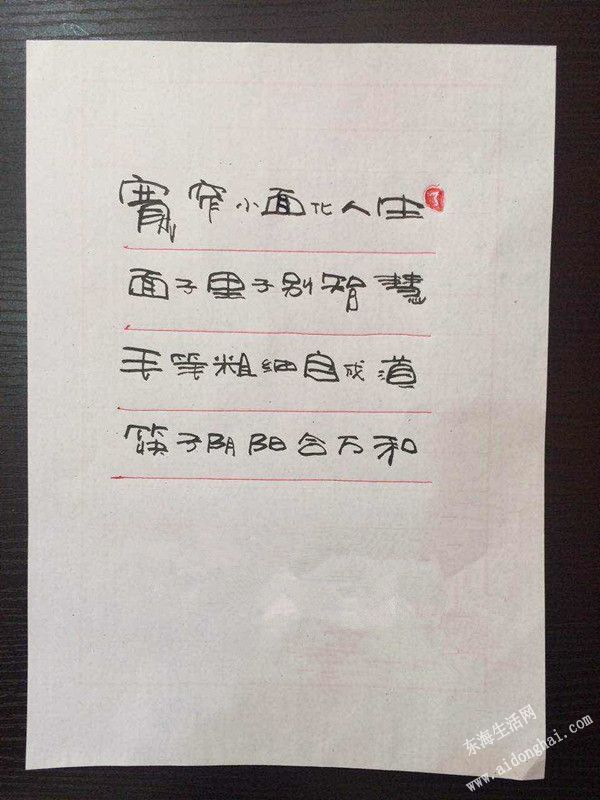 寬窄小面化人生
面子里子别智慧
毛笔粗细自成道
筷子阴阳合万和
东海生活网
www.aidonghai.com